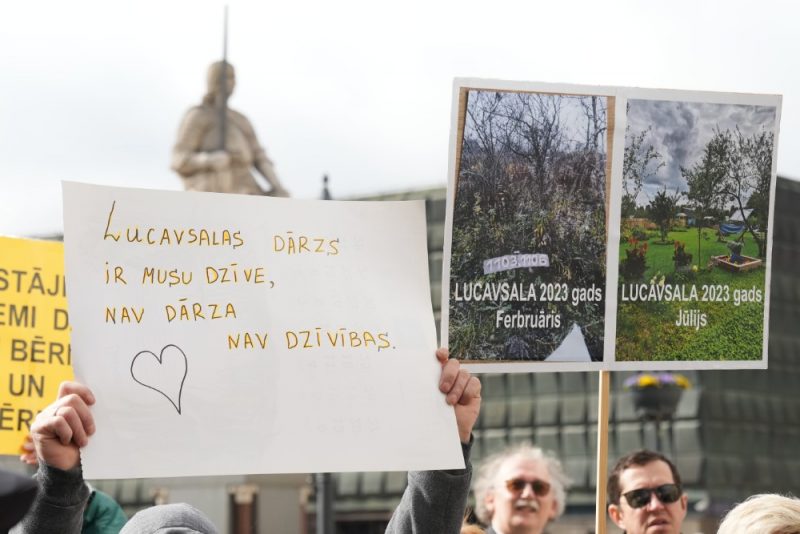 UN
LUCAVSALAS DĀRZS
IR MUSU DZĪVE,
NAV DĀRZA
NAV DZĪVĪBAS.
LUCAVSALA 2023 gads
Ferbruāris
LUCAVSALA 2023 gads
Jūlijs